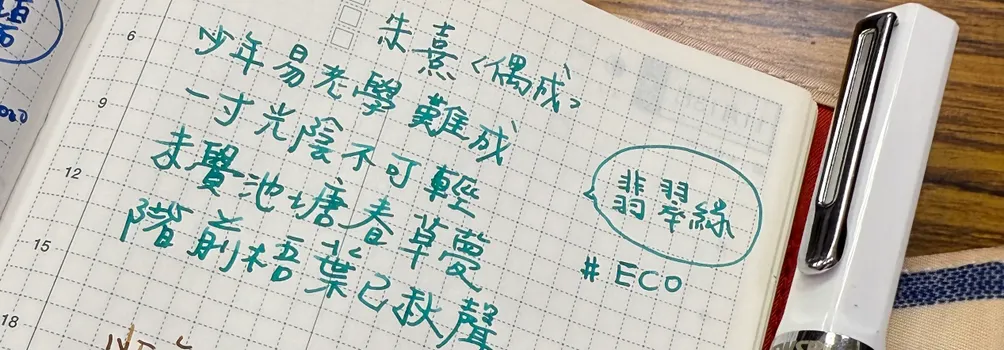 朱熹〈偶成〉
6
少年易老學難成
9
一寸光陰不可輕
12
未覺池塘春草夢
15
階前梧葉已秋聲
18
翡翠綠
#ECO